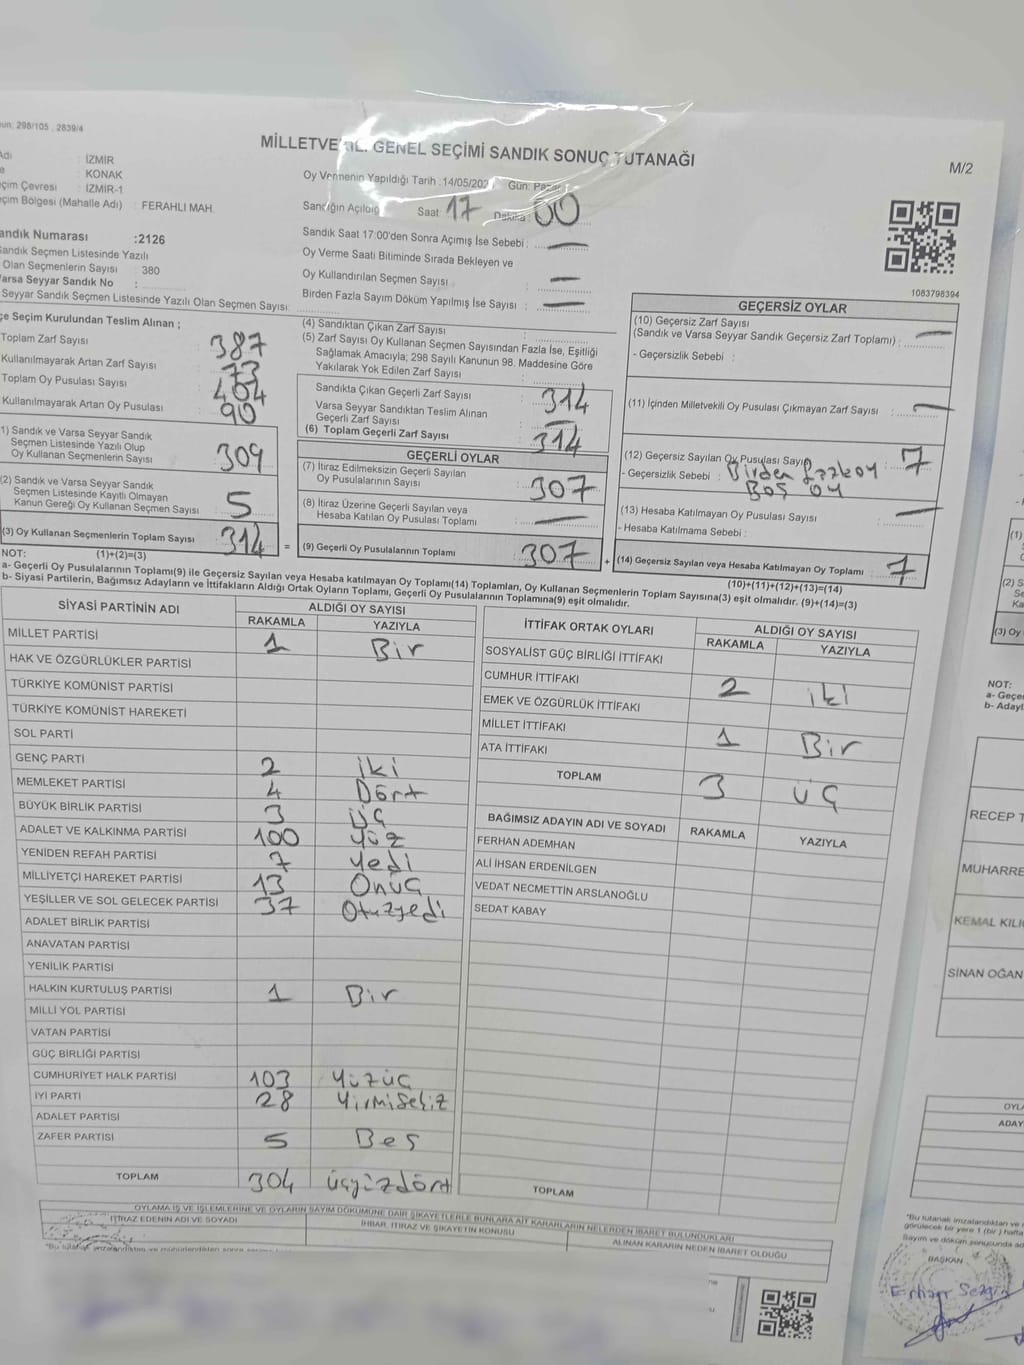 298/105 , 2839/4
MİLLETVE GENEL SEÇİMİ SANDIK SONUÇ TUTANAĞI
M/2
İZMİR
KONAK
çim Çevresi : İZMİR-1
çim Bölgesi (Mahalle Adı) : FERAHLI MAH.
andık Numarası :2126
andık Seçmen Listesinde Yazılı
Olan Seçmenlerin Sayısı : 380
arsa Seyyar Sandık No :
Seyyar Sandık Seçmen Listesinde Yazılı Olan Seçmen Sayısı:
Oy Vermenin Yapıldığı Tarih :14/05/202 Gün: Pazar
Sandığın Açıldığı Saat 17 Dakika: 00
Sandık Saat 17:00'den Sonra Açımış İse Sebebi : —
Oy Verme Saati Bitiminde Sırada Bekleyen ve
Oy Kullandırılan Seçmen Sayısı : —
Birden Fazla Sayım Döküm Yapılmış İse Sayısı : —
1083798394
çe Seçim Kurulundan Teslim Alınan ;
Toplam Zarf Sayısı : 387
Kullanılmayarak Artan Zarf Sayısı : 73
Toplam Oy Pusulası Sayısı : 404
Kullanılmayarak Artan Oy Pusulası : 90
1) Sandık ve Varsa Seyyar Sandık
Seçmen Listesinde Yazılı Olup
Oy Kullanan Seçmenlerin Sayısı : 309
(2) Sandık ve Varsa Seyyar Sandık
Seçmen Listesinde Kayıtlı Olmayan
Kanun Gereği Oy Kullanan Seçmen Sayısı : 5
(3) Oy Kullanan Seçmenlerin Toplam Sayısı : 314
(4) Sandıktan Çıkan Zarf Sayısı :
(5) Zarf Sayısı Oy Kullanan Seçmen Sayısından Fazla İse, Eşitliği
Sağlamak Amacıyla; 298 Sayılı Kanunun 98. Maddesine Göre
Yakılarak Yok Edilen Zarf Sayısı :
Sandıkta Çıkan Geçerli Zarf Sayısı : 314
Varsa Seyyar Sandıktan Teslim Alınan
Geçerli Zarf Sayısı : —
(6) Toplam Geçerli Zarf Sayısı : 314
GEÇERLİ OYLAR
(7) İtiraz Edilmeksizin Geçerli Sayılan
Oy Pusulalarının Sayısı : 307
(8) İtiraz Üzerine Geçerli Sayılan veya
Hesaba Katılan Oy Pusulası Toplamı : —
= (9) Geçerli Oy Pusulalarının Toplamı : 307
GEÇERSİZ OYLAR
(10) Geçersiz Zarf Sayısı
(Sandık ve Varsa Seyyar Sandık Geçersiz Zarf Toplamı) : —
- Geçersizlik Sebebi :
(11) İçinden Milletvekili Oy Pusulası Çıkmayan Zarf Sayısı : —
(12) Geçersiz Sayılan Oy Pusulası Sayısı : 7
- Geçersizlik Sebebi : Birden Fazla oy
Boş oy
(13) Hesaba Katılmayan Oy Pusulası Sayısı : —
- Hesaba Katılmama Sebebi :
+ (14) Geçersiz Sayılan veya Hesaba Katılmayan Oy Toplamı : 7
NOT: (1)+(2)=(3)
(10)+(11)+(12)+(13)=(14)
a- Geçerli Oy Pusulalarının Toplamı(9) ile Geçersiz Sayılan veya Hesaba katılmayan Oy Toplamı(14) Toplamları, Oy Kullanan Seçmenlerin Toplam Sayısına(3) eşit olmalıdır. (9)+(14)=(3)
b- Siyasi Partilerin, Bağımsız Adayların ve İttifakların Aldığı Ortak Oyların Toplamı, Geçerli Oy Pusulalarının Toplamına(9) eşit olmalıdır.
SİYASİ PARTİNİN ADI ALDIĞI OY SAYISI
RAKAMLA YAZIYLA
MİLLET PARTİSİ 1 Bir
HAK VE ÖZGÜRLÜKLER PARTİSİ
TÜRKİYE KOMÜNİST PARTİSİ
TÜRKİYE KOMÜNİST HAREKETİ
SOL PARTİ
GENÇ PARTİ 2 iki
MEMLEKET PARTİSİ 4 Dört
BÜYÜK BİRLİK PARTİSİ 3 Üç
ADALET VE KALKINMA PARTİSİ 100 Yüz
YENİDEN REFAH PARTİSİ 7 Yedi
MİLLİYETÇİ HAREKET PARTİSİ 13 Onüç
YEŞİLLER VE SOL GELECEK PARTİSİ 37 Otuzyedi
ADALET BİRLİK PARTİSİ
ANAVATAN PARTİSİ
YENİLİK PARTİSİ
HALKIN KURTULUŞ PARTİSİ 1 Bir
MİLLİ YOL PARTİSİ
VATAN PARTİSİ
GÜÇ BİRLİĞİ PARTİSİ
CUMHURİYET HALK PARTİSİ 103 Yüzüç
İYİ PARTİ 28 Yirmisekiz
ADALET PARTİSİ
ZAFER PARTİSİ 5 Beş
TOPLAM 304 üçyüzdört
İTTİFAK ORTAK OYLARI ALDIĞI OY SAYISI
RAKAMLA YAZIYLA
SOSYALİST GÜÇ BİRLİĞİ İTTİFAKI
CUMHUR İTTİFAKI 2 iki
EMEK VE ÖZGÜRLÜK İTTİFAKI
MİLLET İTTİFAKI 1 Bir
ATA İTTİFAKI
TOPLAM 3 üç
BAĞIMSIZ ADAYIN ADI VE SOYADI RAKAMLA YAZIYLA
FERHAN ADEMHAN
ALİ İHSAN ERDENİLGEN
VEDAT NECMETTİN ARSLANOĞLU
SEDAT KABAY
TOPLAM
OYLAMA İŞ VE İŞLEMLERİNE VE OYLARIN SAYIM DÖKÜMÜNE DAİR ŞİKAYETLERLE BUNLARA AİT KARARLARIN NELERDEN İBARET BULUNDUKLARI
İTİRAZ EDENİN ADI VE SOYADI İHBAR, İTİRAZ VE ŞİKAYETİN KONUSU ALINAN KARARIN NEDEN İBARET OLDUĞU
(1)
(2) S
(3) Oy
NOT:
a- Geçer
b- Adayl
RECEP T
MUHARRE
KEMAL KILI
SİNAN OĞAN
OYLA
ADAY
*Bu tutanak imzalandıktan ve
görülecek bir yere 1 (bir) hafta
Sayım ve döküm sonucunda
BAŞKAN
Erhan Sezgin